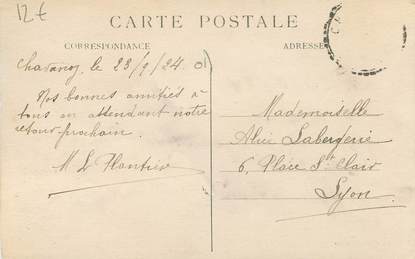 12€
CARTE POSTALE
CORRESPONDANCE
ADRESSE
le 23/9/24 01
Nos bonnes amitiés à
tous en attendant notre
retour prochain.
M L Plantier
Mademoiselle
Alice Labergerie
6, Place St Clair
Lyon.